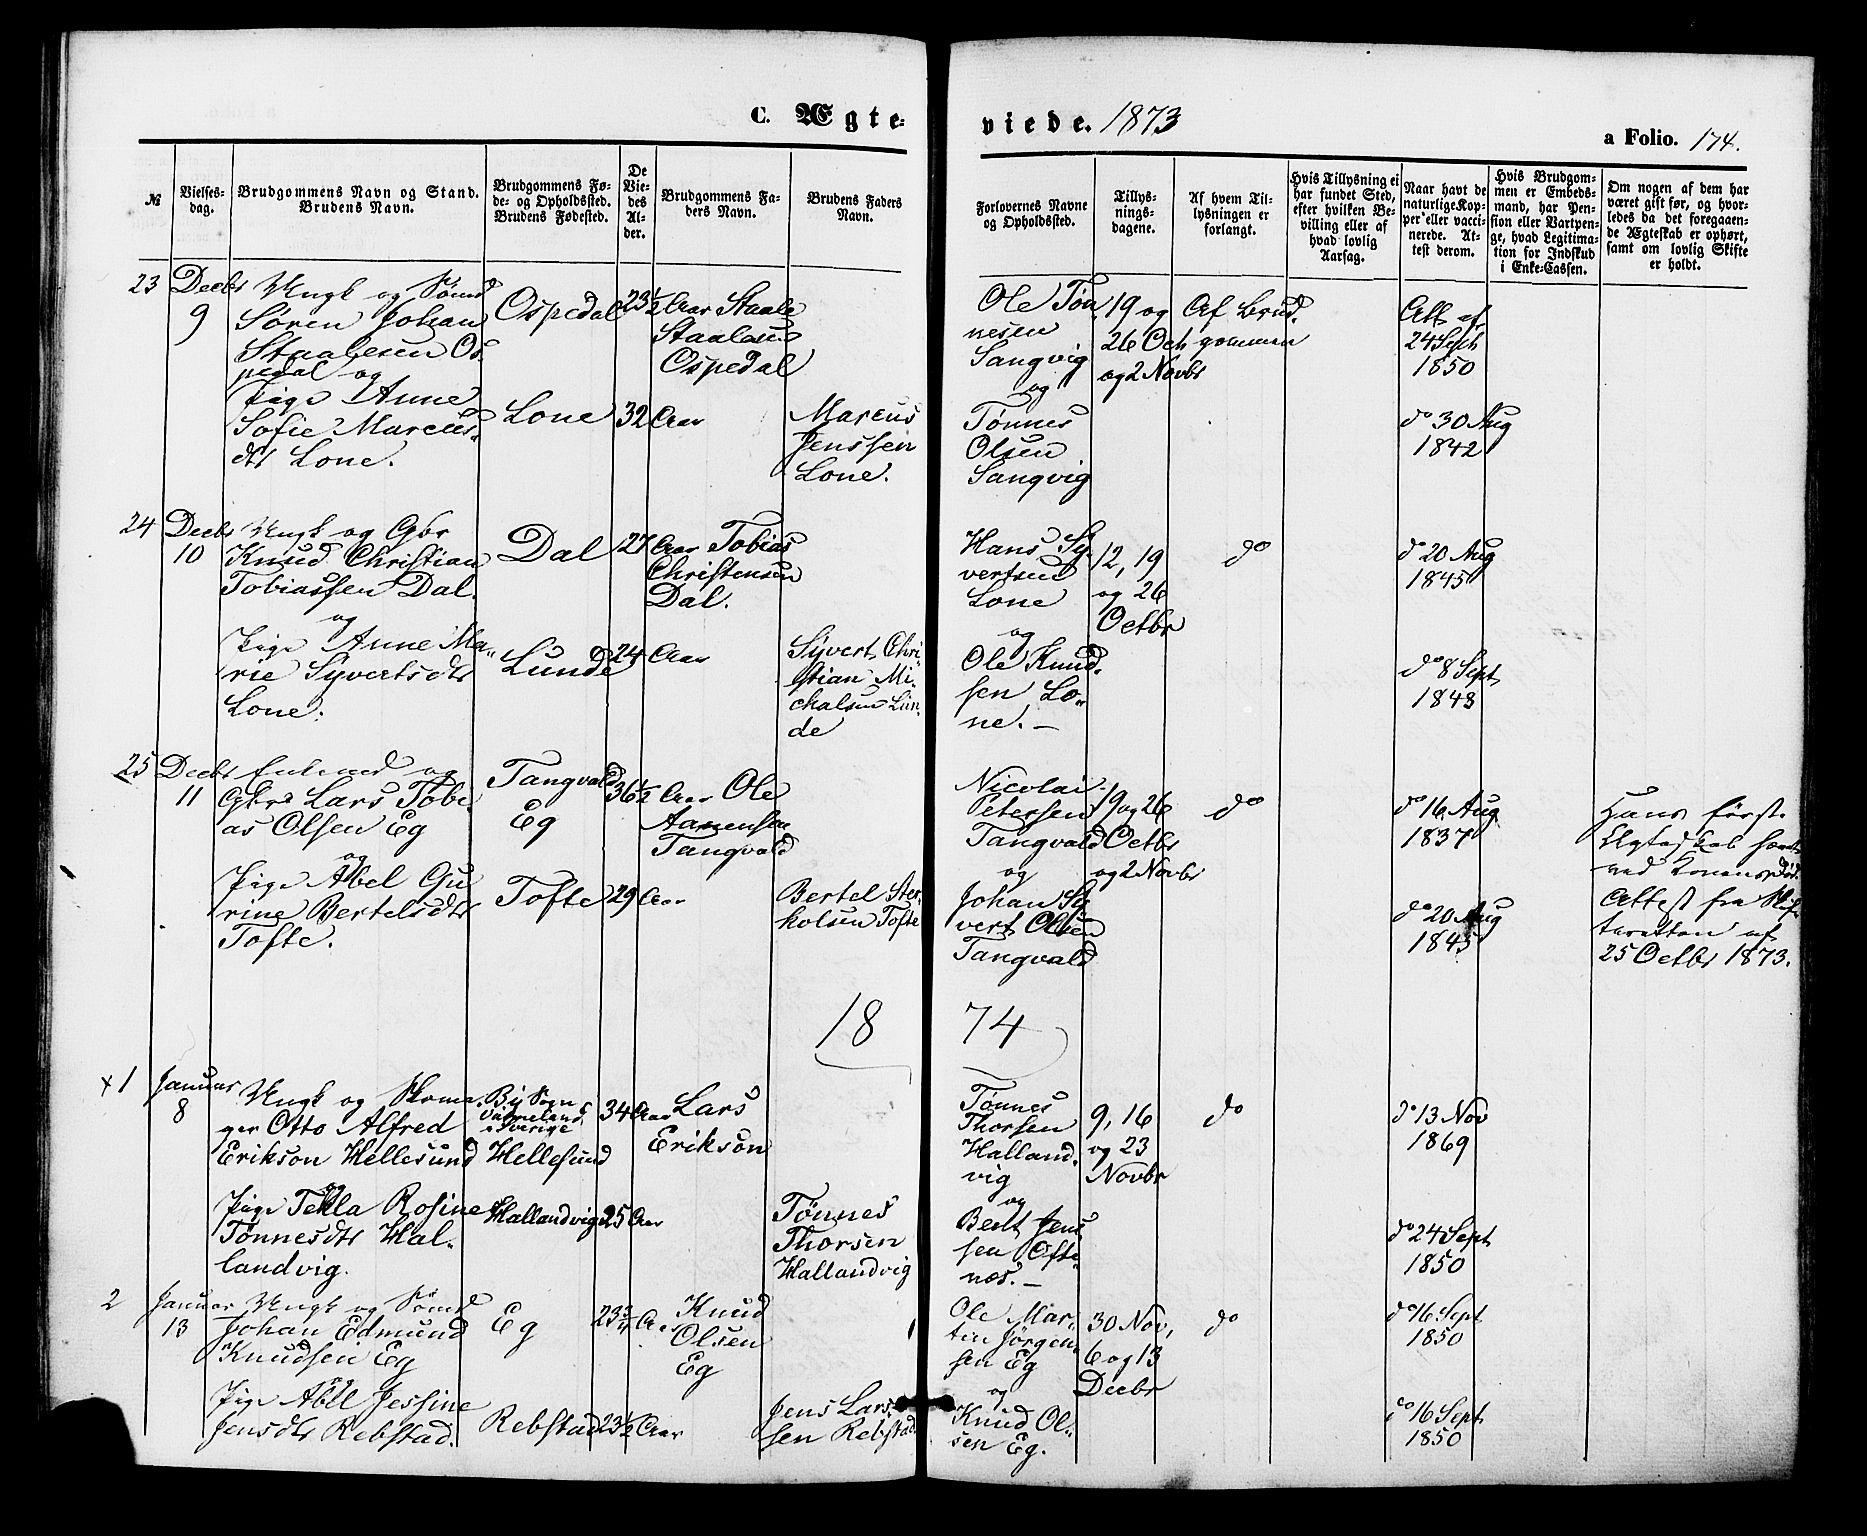 C. Ægte-
viede. 1873
a Folio. 174.
№
Vielses-
dag.
Brudgommens Navn og Stand.
Brudens Navn.
Brudgommens Fø-
de- og Opholdssted.
Brudens Fødested.
De
Vie-
des
Al-
der.
Brudgommens Fa-
ders Navn.
Brudens Faders
Navn.
Forlovernes Navne
og Opholdssted.
Tillys-
nings-
dagene.
Af hvem Til-
lysningen er
forlangt.
Hvis Tillysning ei
har fundet Sted,
efter hvilken Be-
villing eller af
hvad lovlig
Aarsag.
Naar havt de
naturlige Kop-
per eller vacci-
nerede. At-
test derom.
Hvis Brudgom-
men er Embeds-
mand, har Pen-
sion eller Vartpen-
ge, hvad Legitima-
tion for Indskud
i Enke-Cassen.
Om nogen af dem har
været gift før, og hvor-
ledes da det foregaaen-
de Ægteskab er ophørt,
samt om lovlig Skifte
er holdt.
23
Decbr
9
Ungk og Sømd
Søren Johan
Staalesen Os-
pedal og
Pige Anne
Sofie Marcus-
dtr Lone.
Ospedal
Lone
23½ Aar
32 Aar
Staale
Staalesen
Ospedal
Marcus
Jenssen
Lone.
Ole Tøn-
nesen
Sangvig
og
Tønnes
Olsen
Sangvig
19 og
26 Octb
og 2 Novbr
Af Brud-
gommen
Att af
24 Sept
1850
do 30 Aug
1842
24
Decbr
10
Ungk og Gbr
Knud Christian
Tobiassen Dal.
og
Pige Anne Ma-
rie Syvertsdtr
Lone.
Dal
Lunde
27 Aar
24 Aar
Tobias
Christensen
Dal.
Syvert Chri-
stian Mi-
chalsen Lun-
de
Hans Sy-
vertsen
Lone
og
Ole Knud-
sen Lo-
ne. —
12, 19
og 26
Octbr
do
do 20 Aug
1845
do 8 Sept
1848
25
Decbr
11
Enkemd og
Gbr Lars Tobi-
as Olsen Eg
og
Pige Abel Gu-
rine Bertelsdtr
Tofte.
Tangvald
Eg
Tofte
36½ Aar
29 Aar
Ole
Aanensen
Tangvald
Bertel Ster-
kolsen Tofte
Nicolai
Petersen
Tangvald
og
Johan Sy-
vert Olsen
Tangvald
19 og 26
Octbr
og 2 Novbr
do
do 16 Aug
1837
do 20 Aug
1845
Hans første
Ægteskab hævet
ved Konens Død.
Attest fra Skif-
teretten af
25 Octbr 1873.
18 74
x 1
Januar
8
Ungk og Skoma-
ger Otto Alfred
Erikson Hellesund
og
Pige Tekla Rosine
Tønnesdtr Hal-
landvig.
By Sogn
Värmeland
i Sverige
Hellesund
Hallandvig
34 Aar
25 Aar
Lars
Erikson
Tønnes
Thorsen
Hallandvig
Tønnes
Thorsen
Halland-
vig
og
Bent Jens-
sen Ofte-
næs. —
9, 16
og 23
Novbr
do
do 13 Nov
1869
do 24 Sept
1850
2
Januar
13
Ungk og Sømd
Johan Edmund
Knudsen Eg
og
Pige Abel Jessine
Jensdtr Rebstad.
Eg
Rebstad
23¾ Aar
23½ Aar
Knud
Olsen
Eg
Jens Lars-
sen Rebstad.
Ole Mar-
tin Jørgen-
sen Eg
og
Knud Ol-
sen Eg.
30 Nov,
6 og 13
Decbr
do
do 16 Sept
1850
do 16 Sept
1850